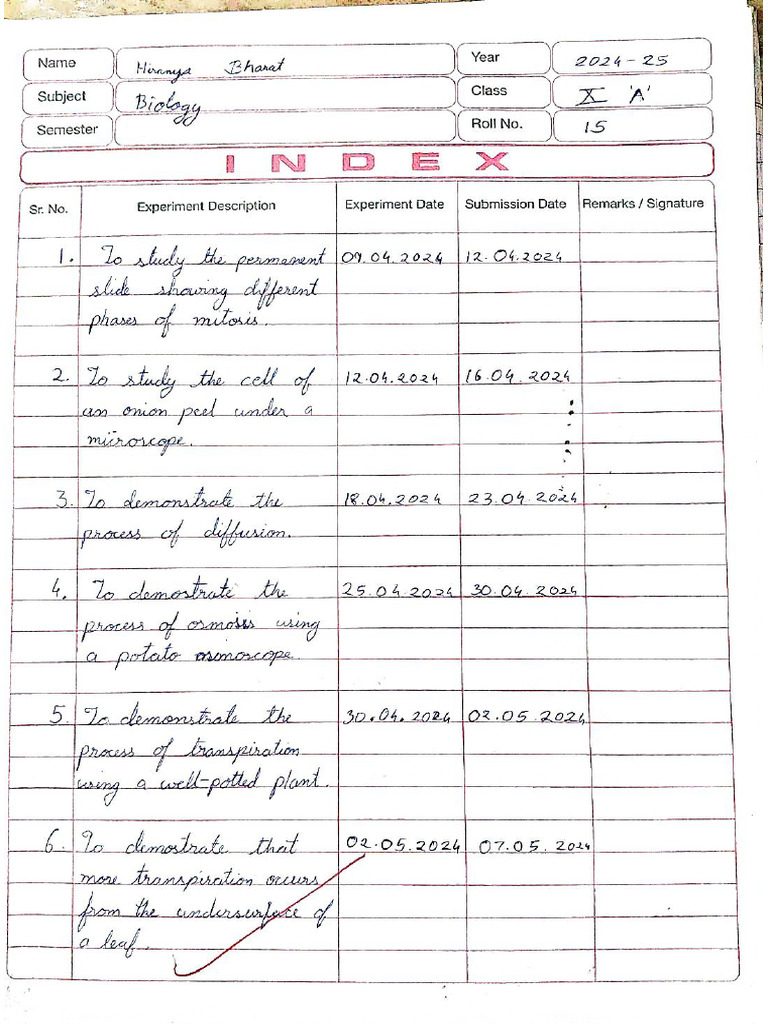 Name Hiranya Bharat Year 2024-25
Subject Biology Class X 'A'
Semester Roll No. 15
INDEX
Sr. No. Experiment Description Experiment Date Submission Date Remarks / Signature
1. To study the permanent 09.04.2024 12.04.2024
slide showing different
phases of mitosis.
2. To study the cell of 12.04.2024 16.04.2024
an onion peel under a
microscope.
3. To demonstrate the 18.04.2024 23.04.2024
process of diffusion.
4. To demostrate the 25.04.2024 30.04.2024
process of osmosis using
a potato osmoscope.
5. To demonstrate the 30.04.2024 02.05.2024
process of transpiration
using a well-potted plant.
6. To demostrate that 02.05.2024 07.05.2024
more transpiration occurs
from the undersurface of
a leaf.